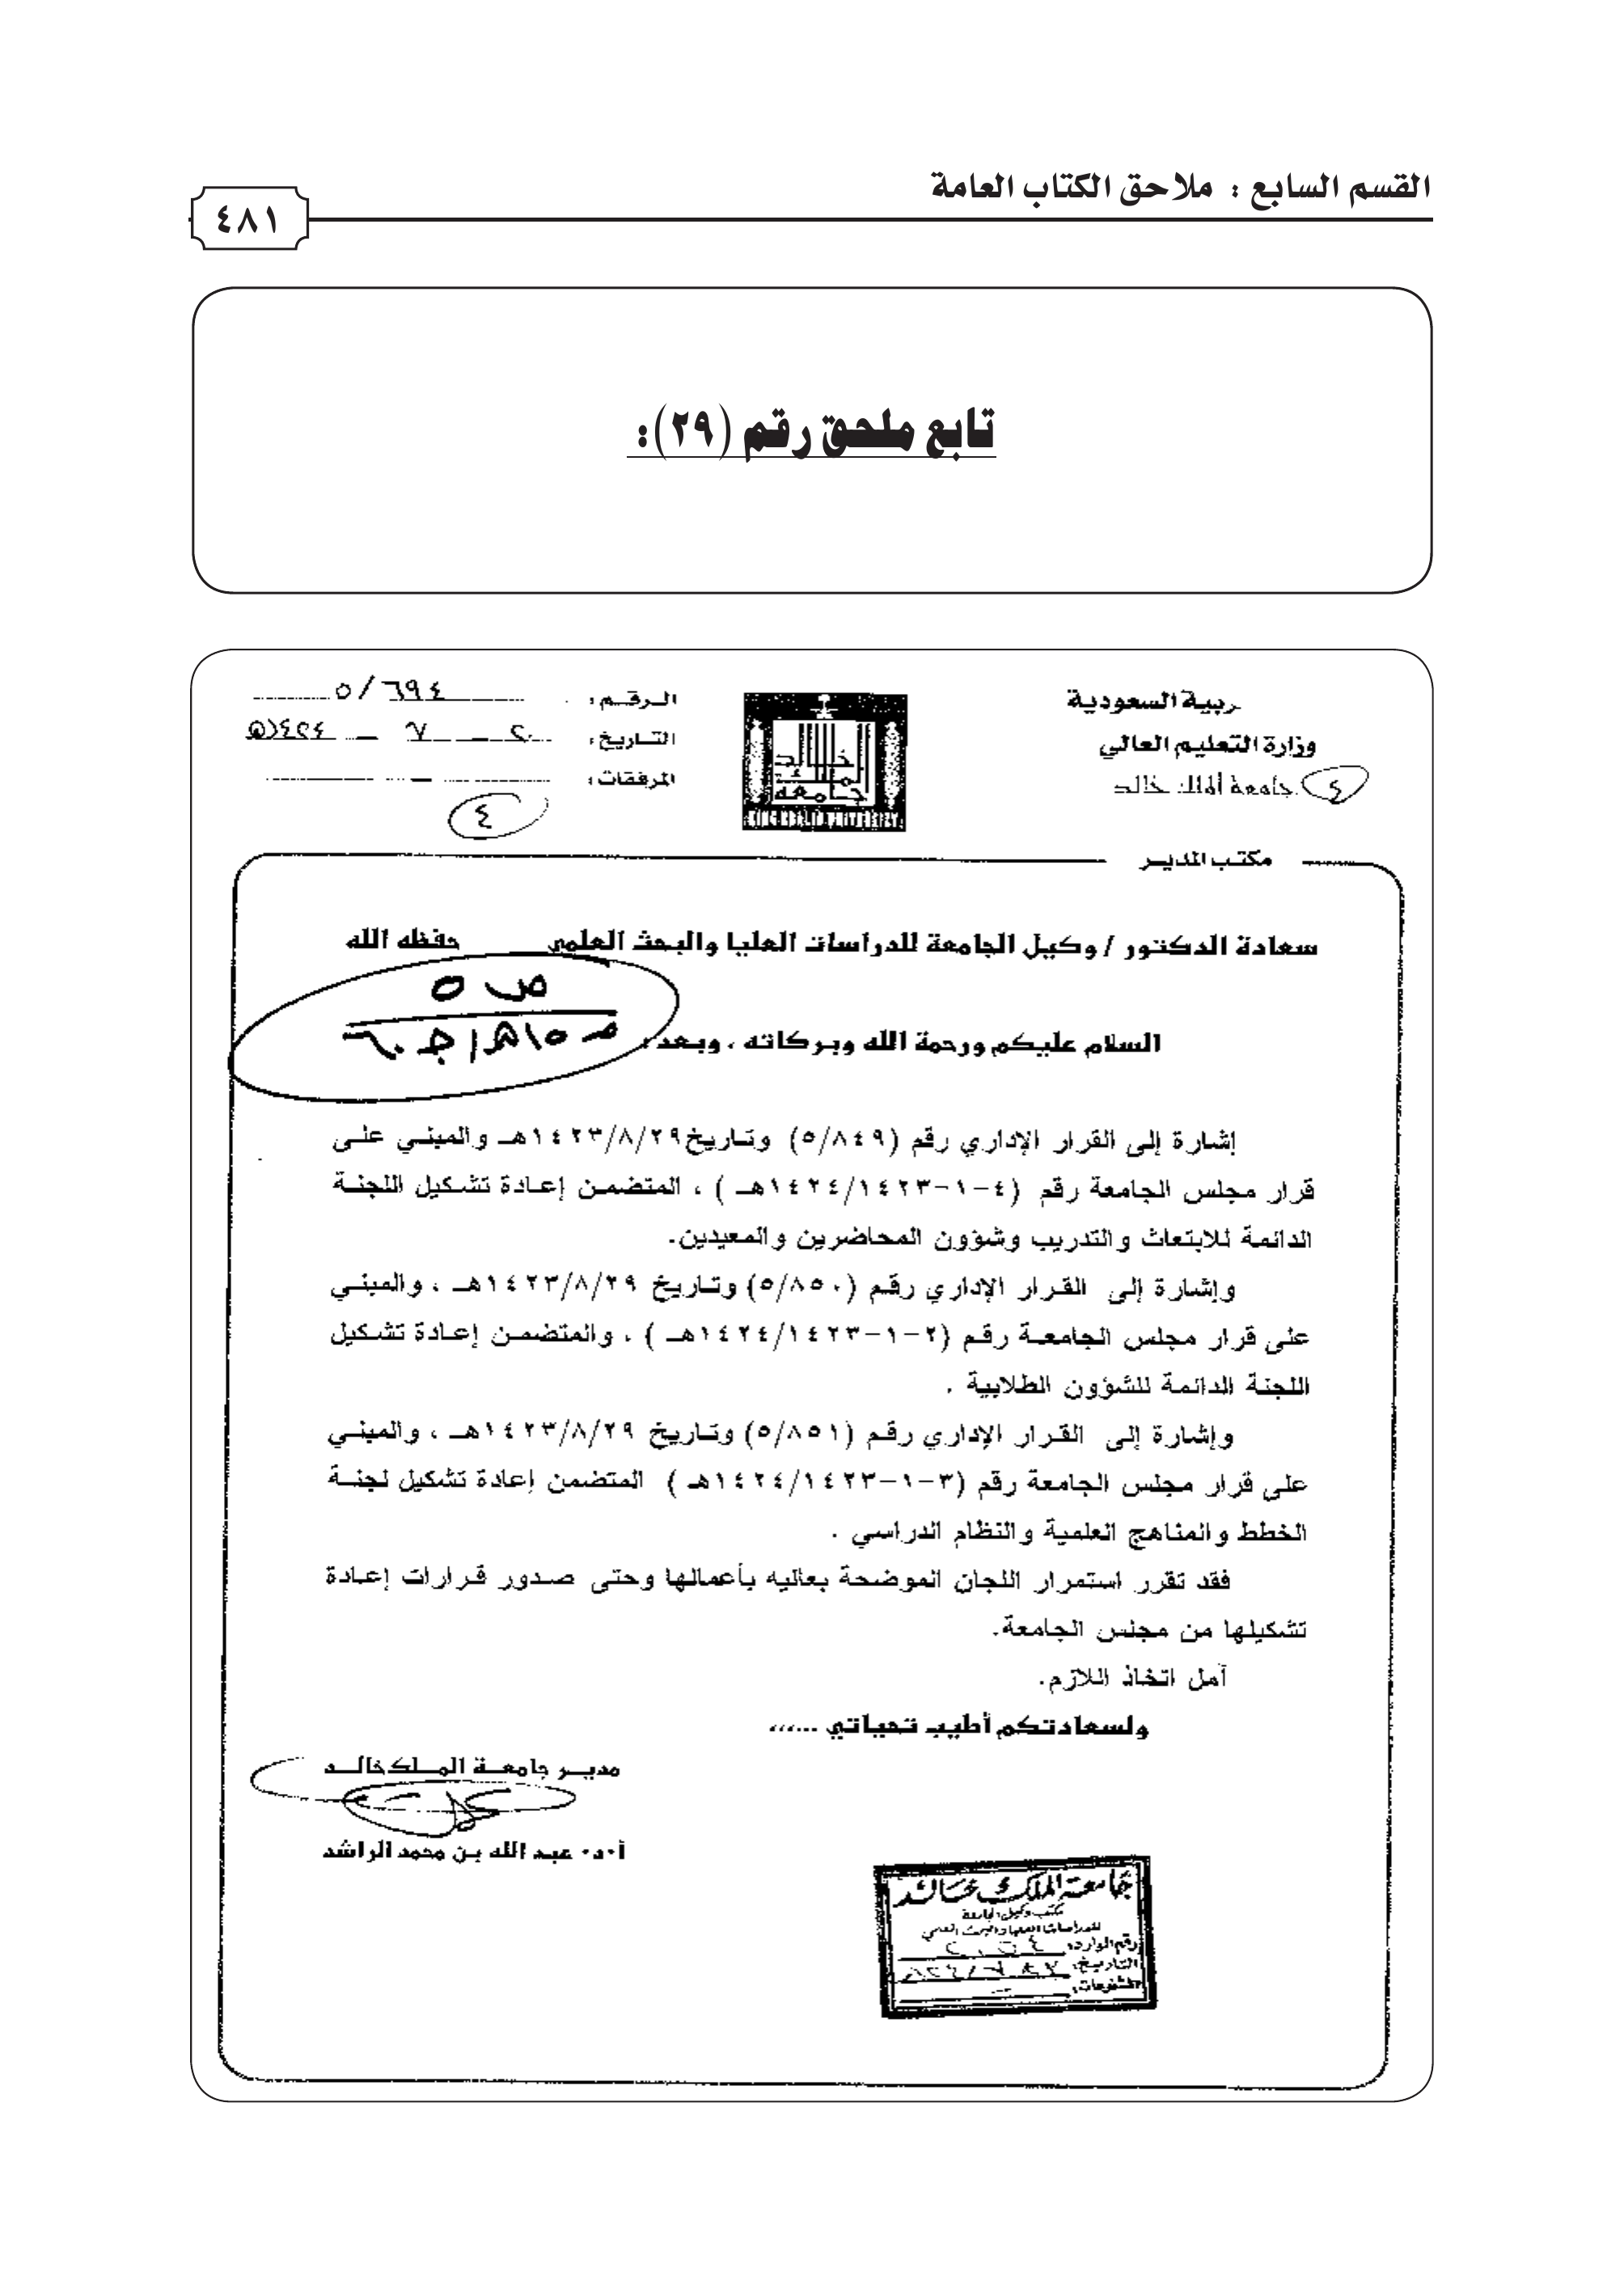 القسم السابع : ملاحق الكتاب العامة
٤٨١
تابع ملحق رقم (٢٩):
ربية السعودية
وزارة التعليم العالي
جامعة الملك خالد
٤
الرقم : ٥/٦٩٤
التاريخ :
المرفقات :
٤
KING KHALID UNIVERSITY
مكتب المدير
سعادة الدكتور / وكيل الجامعة للدراسات العليا والبحث العلمي حفظه الله
ص ٥
السلام عليكم ورحمة الله وبركاته ، وبعد :
إشارة إلى القرار الإداري رقم (٥/٨٤٩) وتاريخ ١٤٢٣/٨/٢٩هـ والمبني على
قرار مجلس الجامعة رقم (٤-١-١٤٢٤/١٤٢٣هـ ) ، المتضمن إعادة تشكيل اللجنة
الدائمة للابتعاث والتدريب وشؤون المحاضرين والمعيدين.
وإشارة إلى القرار الإداري رقم (٥/٨٥٠) وتاريخ ١٤٢٣/٨/٢٩هـ ، والمبني
على قرار مجلس الجامعة رقم (٢-١-١٤٢٤/١٤٢٣هـ ) ، والمتضمن إعادة تشكيل
اللجنة الدائمة للشؤون الطلابية .
وإشارة إلى القرار الإداري رقم (٥/٨٥١) وتاريخ ١٤٢٣/٨/٢٩هـ ، والمبني
على قرار مجلس الجامعة رقم (٣-١-١٤٢٤/١٤٢٣هـ ) المتضمن إعادة تشكيل لجنة
الخطط والمناهج العلمية والنظام الدراسي .
فقد تقرر استمرار اللجان الموضحة بعاليه بأعمالها وحتى صدور قرارات إعادة
تشكيلها من مجلس الجامعة.
آمل اتخاذ اللازم.
ولسعادتكم أطيب تحياتي ......
مدير جامعة الملك خالد
أ.د. عبد الله بن محمد الراشد
جامعة الملك خالد
مكتب وكيل الجامعة
للدراسات العليا والبحث العلمي
رقم الوارد:
التاريخ:
المشفوعات: